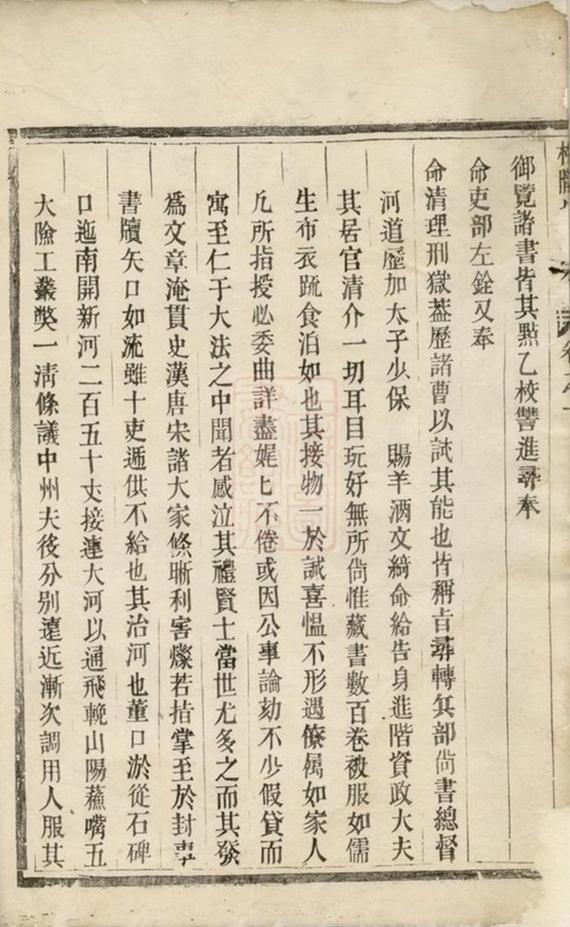 御覽諸書皆其點乙校讐進尋奉
命吏部左銓又奉
命清理刑獄葢歴諸曹以試其能也皆稱㫖尋轉兵部尙書總督
河道歴加太子少保　賜羊酒文綺命給告身進階資政大夫
其居官清介一切耳目玩好無所尙惟藏書數百卷被服如儒
生布衣䟽食泊如也其接物一於誠喜愠不形遇僚属如家人
凢所指授必委曲詳盡娓匕不倦或因公事論劾不少假貸而
寓至仁于大法之中聞者感泣其禮賢士當世尤多之而其發
爲文章淹貫史漢唐宋諸大家條晰利害燦若指掌至於封事
書牘矢口如流雖十吏遞供不給也其治河也董口淤從石碑
口迤南開新河二百五十丈接連大河以通飛輓山陽蘓嘴五
大險工叢獘一清條議中州夫後分别遠近漸次調用人服其